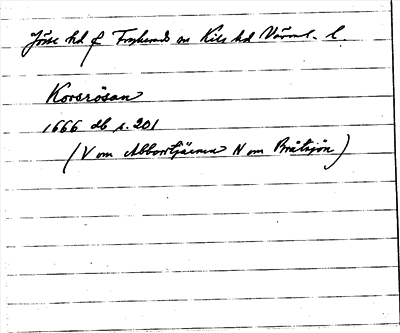 Jösse hd f Fryksände on Kils hd Värml. l.
Korsrösan
1666 db s. 201
(V om Abborrtjärnen N om Bråtsjön)